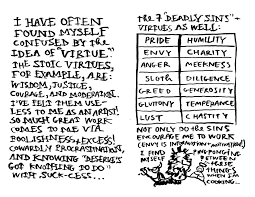 I HAVE OFTEN
FOUND MYSELF
CONFUSED BY THE
IDEA OF "VIRTUE."
THE STOIC VIRTUES,
FOR EXAMPLE, ARE:
WISDOM, JUSTICE,
COURAGE, AND MODERATION.
I'VE FELT THEM USE-
LESS TO ME AS AN ARTIST!
SO MUCH GREAT WORK
COMES TO ME VIA
FOOLISHNESS + EXCESS!
COWARDLY PROCRASTINATION,
AND KNOWING "DESERVE'S
GOT NOTHING TO DO"
WITH SUCK-CESS...
THE 7 "DEADLY SINS" +
VIRTUES AS WELL:
PRIDE HUMILITY
ENVY CHARITY
ANGER MEEKNESS
SLOTH DILIGENCE
GREED GENEROSITY
GLUTTONY TEMPERANCE
LUST CHASTITY
NOT ONLY DO THE SINS
ENCOURAGE ME TO WORK
(ENVY IS INFORMATION + MOTIVATION)
I FIND MYSELF
PING PONGING
BETWEEN
THESE
THINGS
WHEN I'M
COOKING...